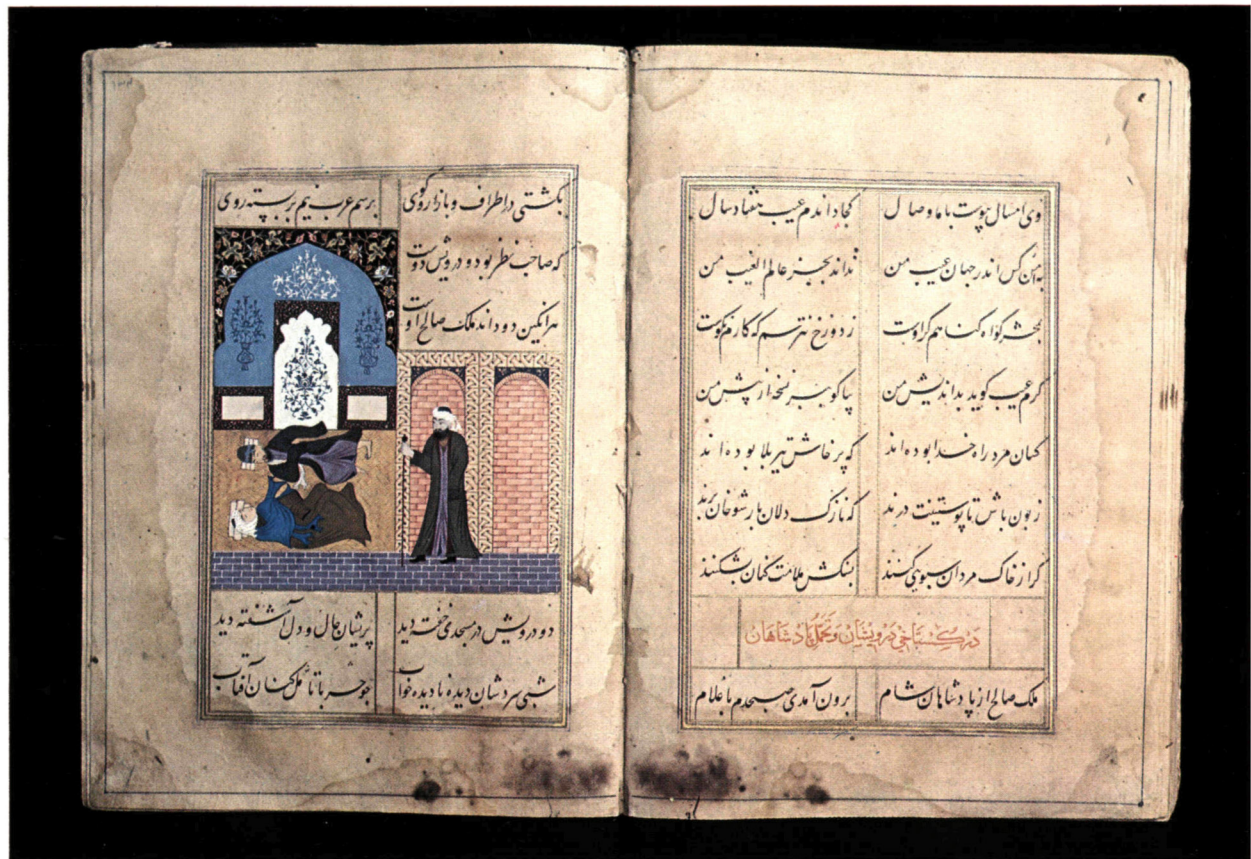 وی امسال پیوست با ما وصال کجا داندم عیب هفتاد سال
کس اندر جهان عیب من نداند بجز عالم الغیب من
بمحشر گواه گناهم گر اوست ز دوزخ نترسم که کارم نکوست
گرم عیب گوید بداندیش من بیا گو ببر نسخه از پیش من
کسان مرد راه خدا بوده اند که پرخاش تیر بلا بوده اند
زبون باش تا پوستینت درند که نازک دلان بار شوخان برند
گر از خاک مردان سبویی کنند بسنگش ملامت کنان بشکنند
در گستاخی درویشان و تحمل پادشاهان
ملک صالح از پادشاهان شام برون آمدی صبحدم با غلام
بگشتی در اطراف و بازار و کوی برسم عرب نیم بربسته روی
که صاحب نظر بود و درویش دوست
هرانکین دو داند ملک صالح اوست
دو درویش در مسجدی خفته دید پریشان حال و دل آشفته دید
شبی سردشان دیده نادیده خواب چو حربا تامل کنان آفتاب